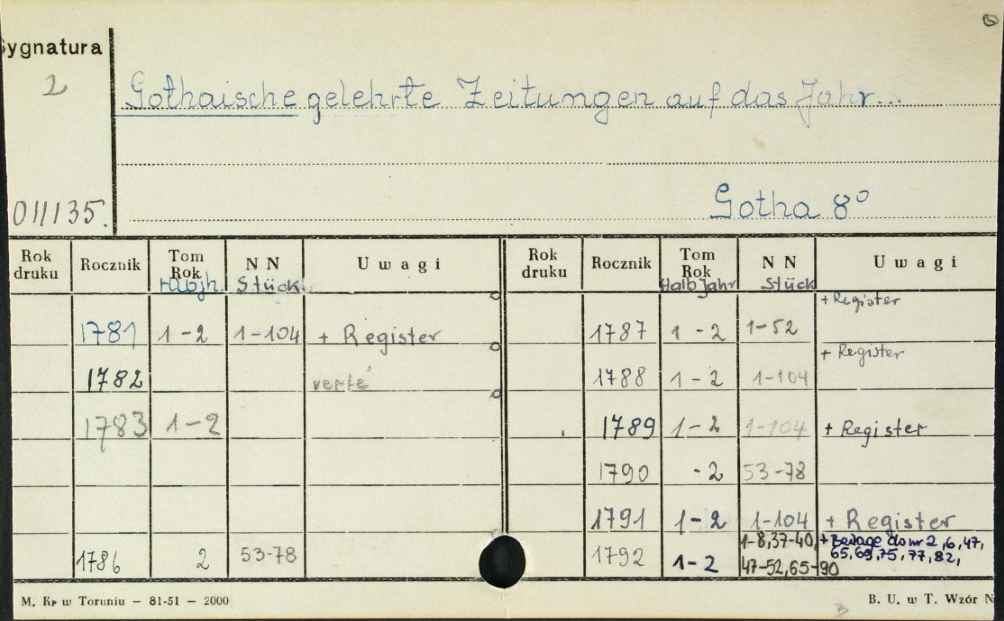 Sygnatura
2
Gothaische gelehrte Zeitungen auf das Jahr...
011135.
Gotha 8º
Rok druku Rocznik Tom Rok Halbjh. NN Stück Uwagi
1781 1-2 1-104 + Register
1782 verte
1783 1-2
1786 2 53-78
Rok druku Rocznik Tom Rok Halbjahr NN Stück Uwagi
1787 1-2 1-52 + Register
1788 1-2 1-104 + Register
1789 1-2 1-104 + Register
1790 -2 53-78
1791 1-2 1-104 + Register
1792 1-2 1-8,37-40, 47-52,65-90 + Beilage do nr 2,6,47, 65,69,75,77,82,
M. Kr w Toruniu — 81-51 — 2000
B. U. w T. Wzór N